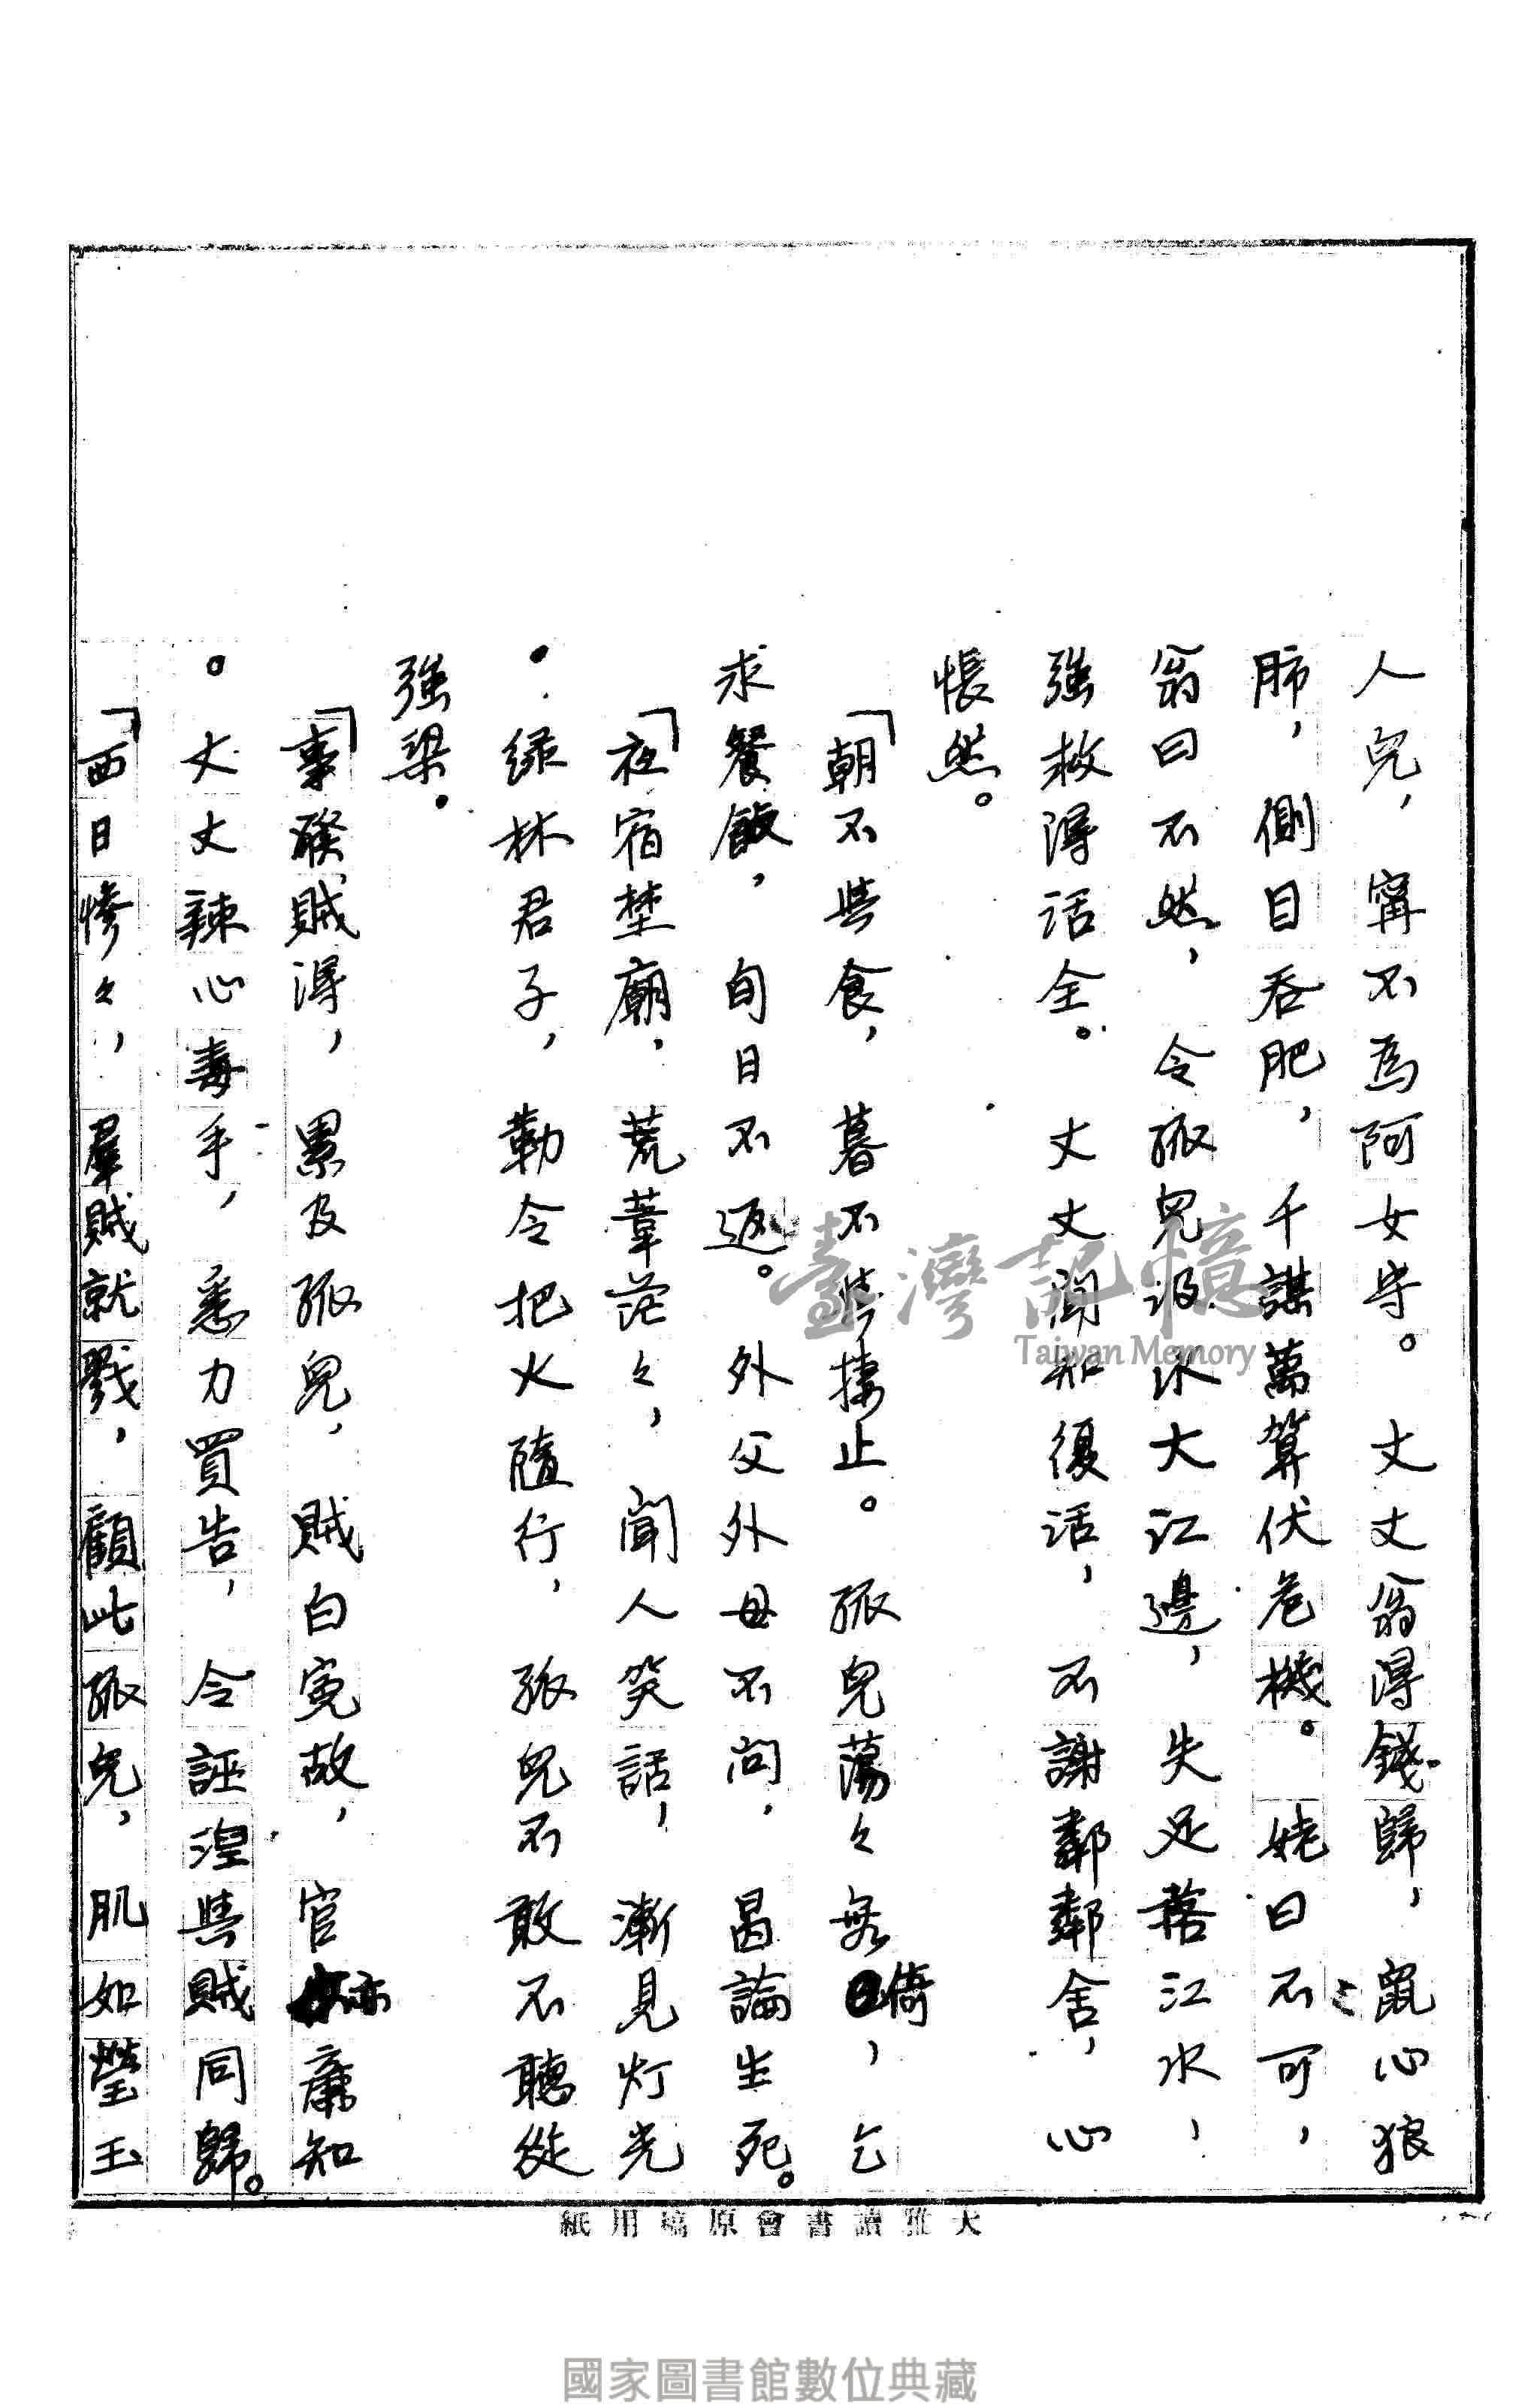 人兒，寧不為阿女守。丈丈翁得錢歸，鼠心狼
肺，側目吞肥，千謀萬算伏危機。姥曰不可，
翁曰不然，令孤兒汲水大江邊，失足落江水，
強救得活全。丈丈聞知復活，不謝鄰鄰舍，心
悵然。
「朝不與食，暮不與捿止。孤兒蕩々無倚，乞
求餐飯，旬日不返。外父外母不問，曷論生死。
「夜宿埜廟，荒葦茫々，聞人笑話，漸見灯光
．綠林君子，勒令把火隨行，孤兒不敢不聽從
強梁．
「事發賊得，累及孤兒，賊白冤故，官亦廉知
。丈丈辣心毒手，悉力買告，令誣湼與賊同歸。
「西日慘々，羣賊就戮，顧此孤兒，肌如瑩玉
臺灣記憶
Taiwan Memory
大雅讀書會原稿用紙
國家圖書館數位典藏